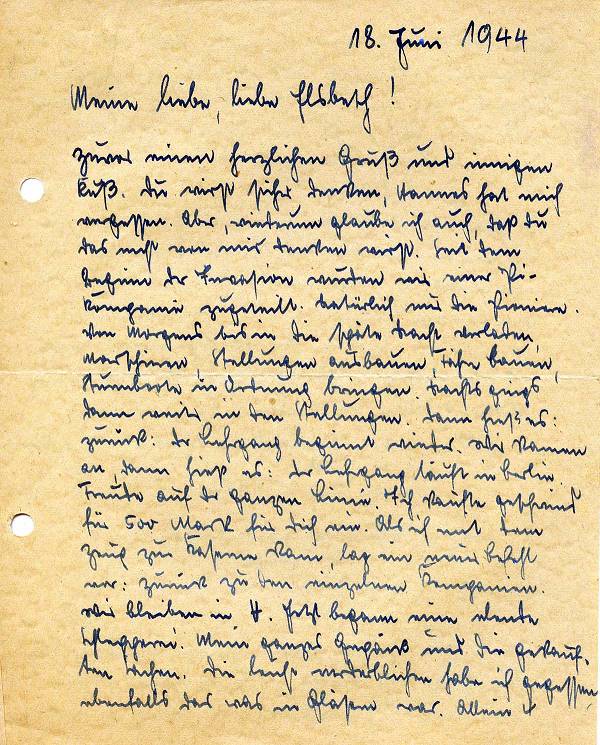 18. Juni 1944
Meine liebe, liebe Elsbeth!
zuvor einen herzlichen Gruß und innigen
Kuß. Du wirst sicher denken, Hannes hat mich
vergessen. Aber, wiederum glaube ich auch, daß du
das nicht von mir denken wirst. Seit dem
Beginn der Invasion wurden wir einer Pi-
Kompanie zugeteilt. Natürlich nur die Pioniere.
Von Morgens bis in die späte Nacht verladen,
marschieren, Stellungen ausbauen, bauen,
Sturmboote in Ordnung bringen. Nachts gings
dann weiter in den Stellungen. Dann hieß es:
zurück: der Lehrgang beginnt wieder. Wir kamen
an, dann hieß es: der Lehrgang läuft in Berlin.
Freude auf der ganzen Linie. Ich kaufte geschwind
für 500 Mark für Dich ein. Als ich mit dem
Zeug zur Kaserne kam, lag ein neuer Befehl
vor: zurück zu den einzelnen Kompanien.
Wir bleiben in H. Jetzt begann eine elende
Schlepperei. Mein ganzes Gepäck und die gekauf-
ten Sachen. Die leicht verderblichen habe ich gegessen,
ebenfalls das was in Gläsern war. Allein 4